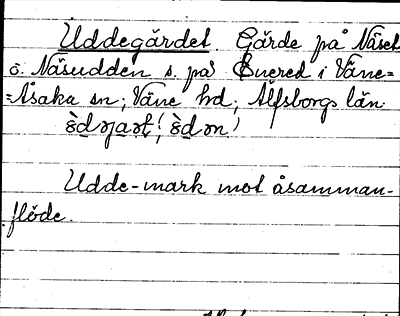 Uddegärdet. Gärde på Näset
ö. Näsudden s. på Önered i Väne-
=Åsaka sn; Väne hd; Älfsborgs län.
Udde-mark mot åsamman-
flöde.